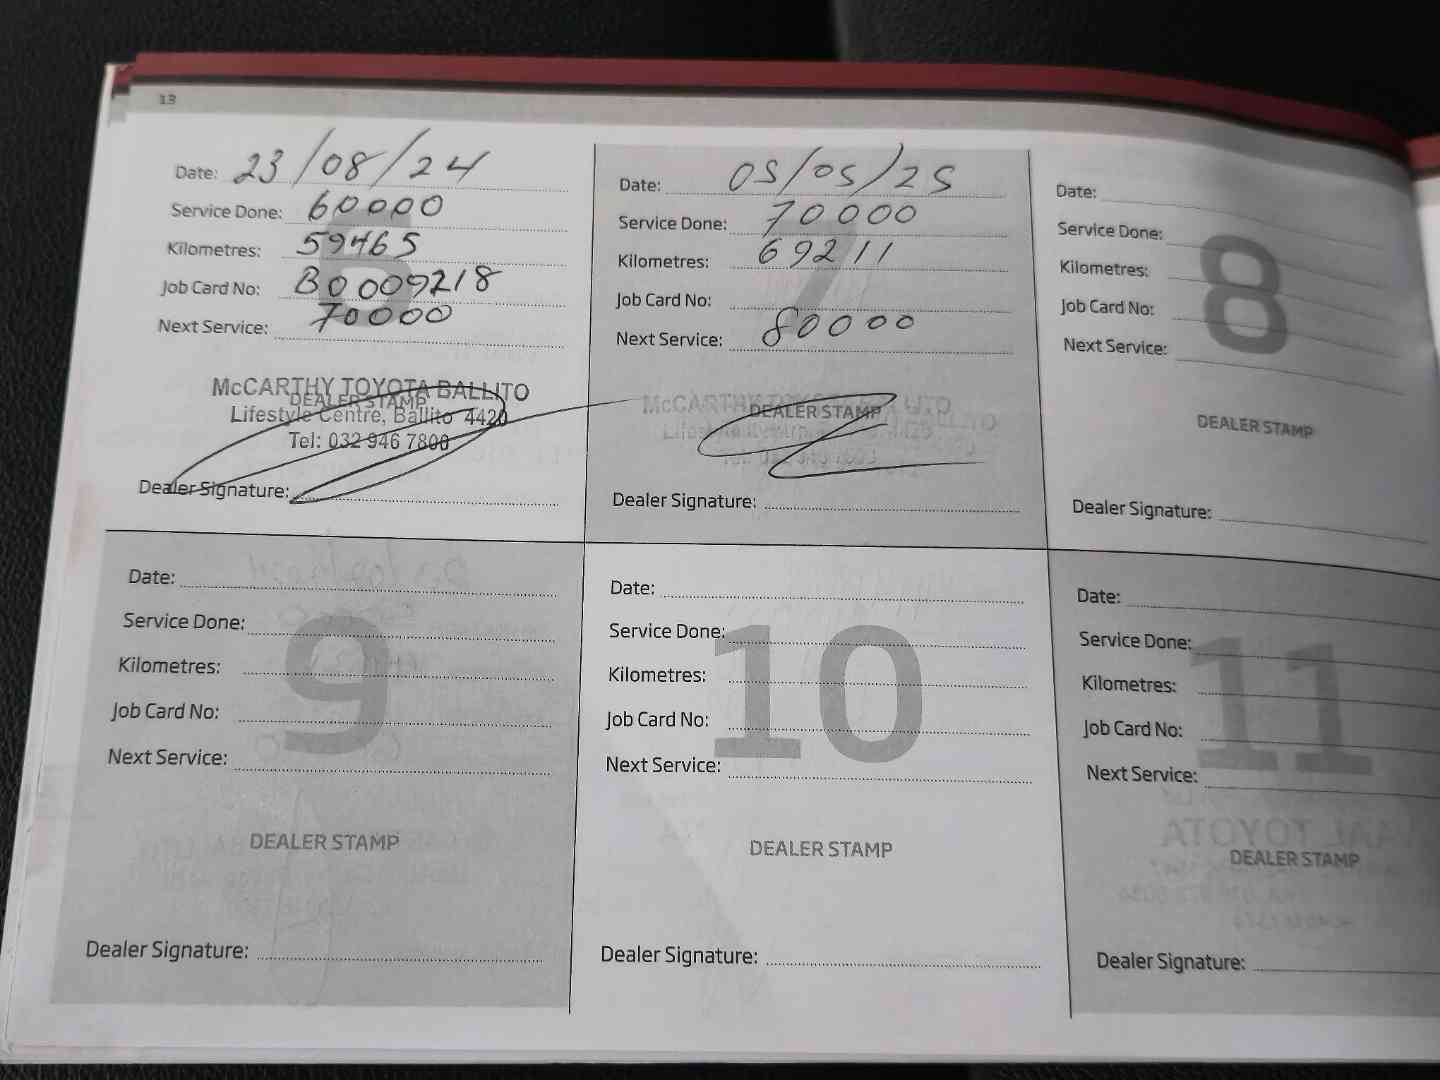 13
Date: 23/08/24
Service Done: 60000
Kilometres: 59465
Job Card No: B0009218
Next Service: 70000
6
McCARTHY TOYOTA BALLITO
DEALER STAMP
Lifestyle Centre, Ballito 4420
Tel: 032 946 7800
Dealer Signature:
Date: 05/05/25
Service Done: 70000
Kilometres: 69211
Job Card No:
Next Service: 80000
7
McCARTHY
DEALER STAMP
Dealer Signature:
Date:
Service Done:
Kilometres:
Job Card No:
Next Service:
8
DEALER STAMP
Dealer Signature:
Date:
Service Done:
Kilometres:
Job Card No:
Next Service:
9
DEALER STAMP
Dealer Signature:
Date:
Service Done:
Kilometres:
Job Card No:
Next Service:
10
DEALER STAMP
Dealer Signature:
Date:
Service Done:
Kilometres:
Job Card No:
Next Service:
11
DEALER STAMP
Dealer Signature: